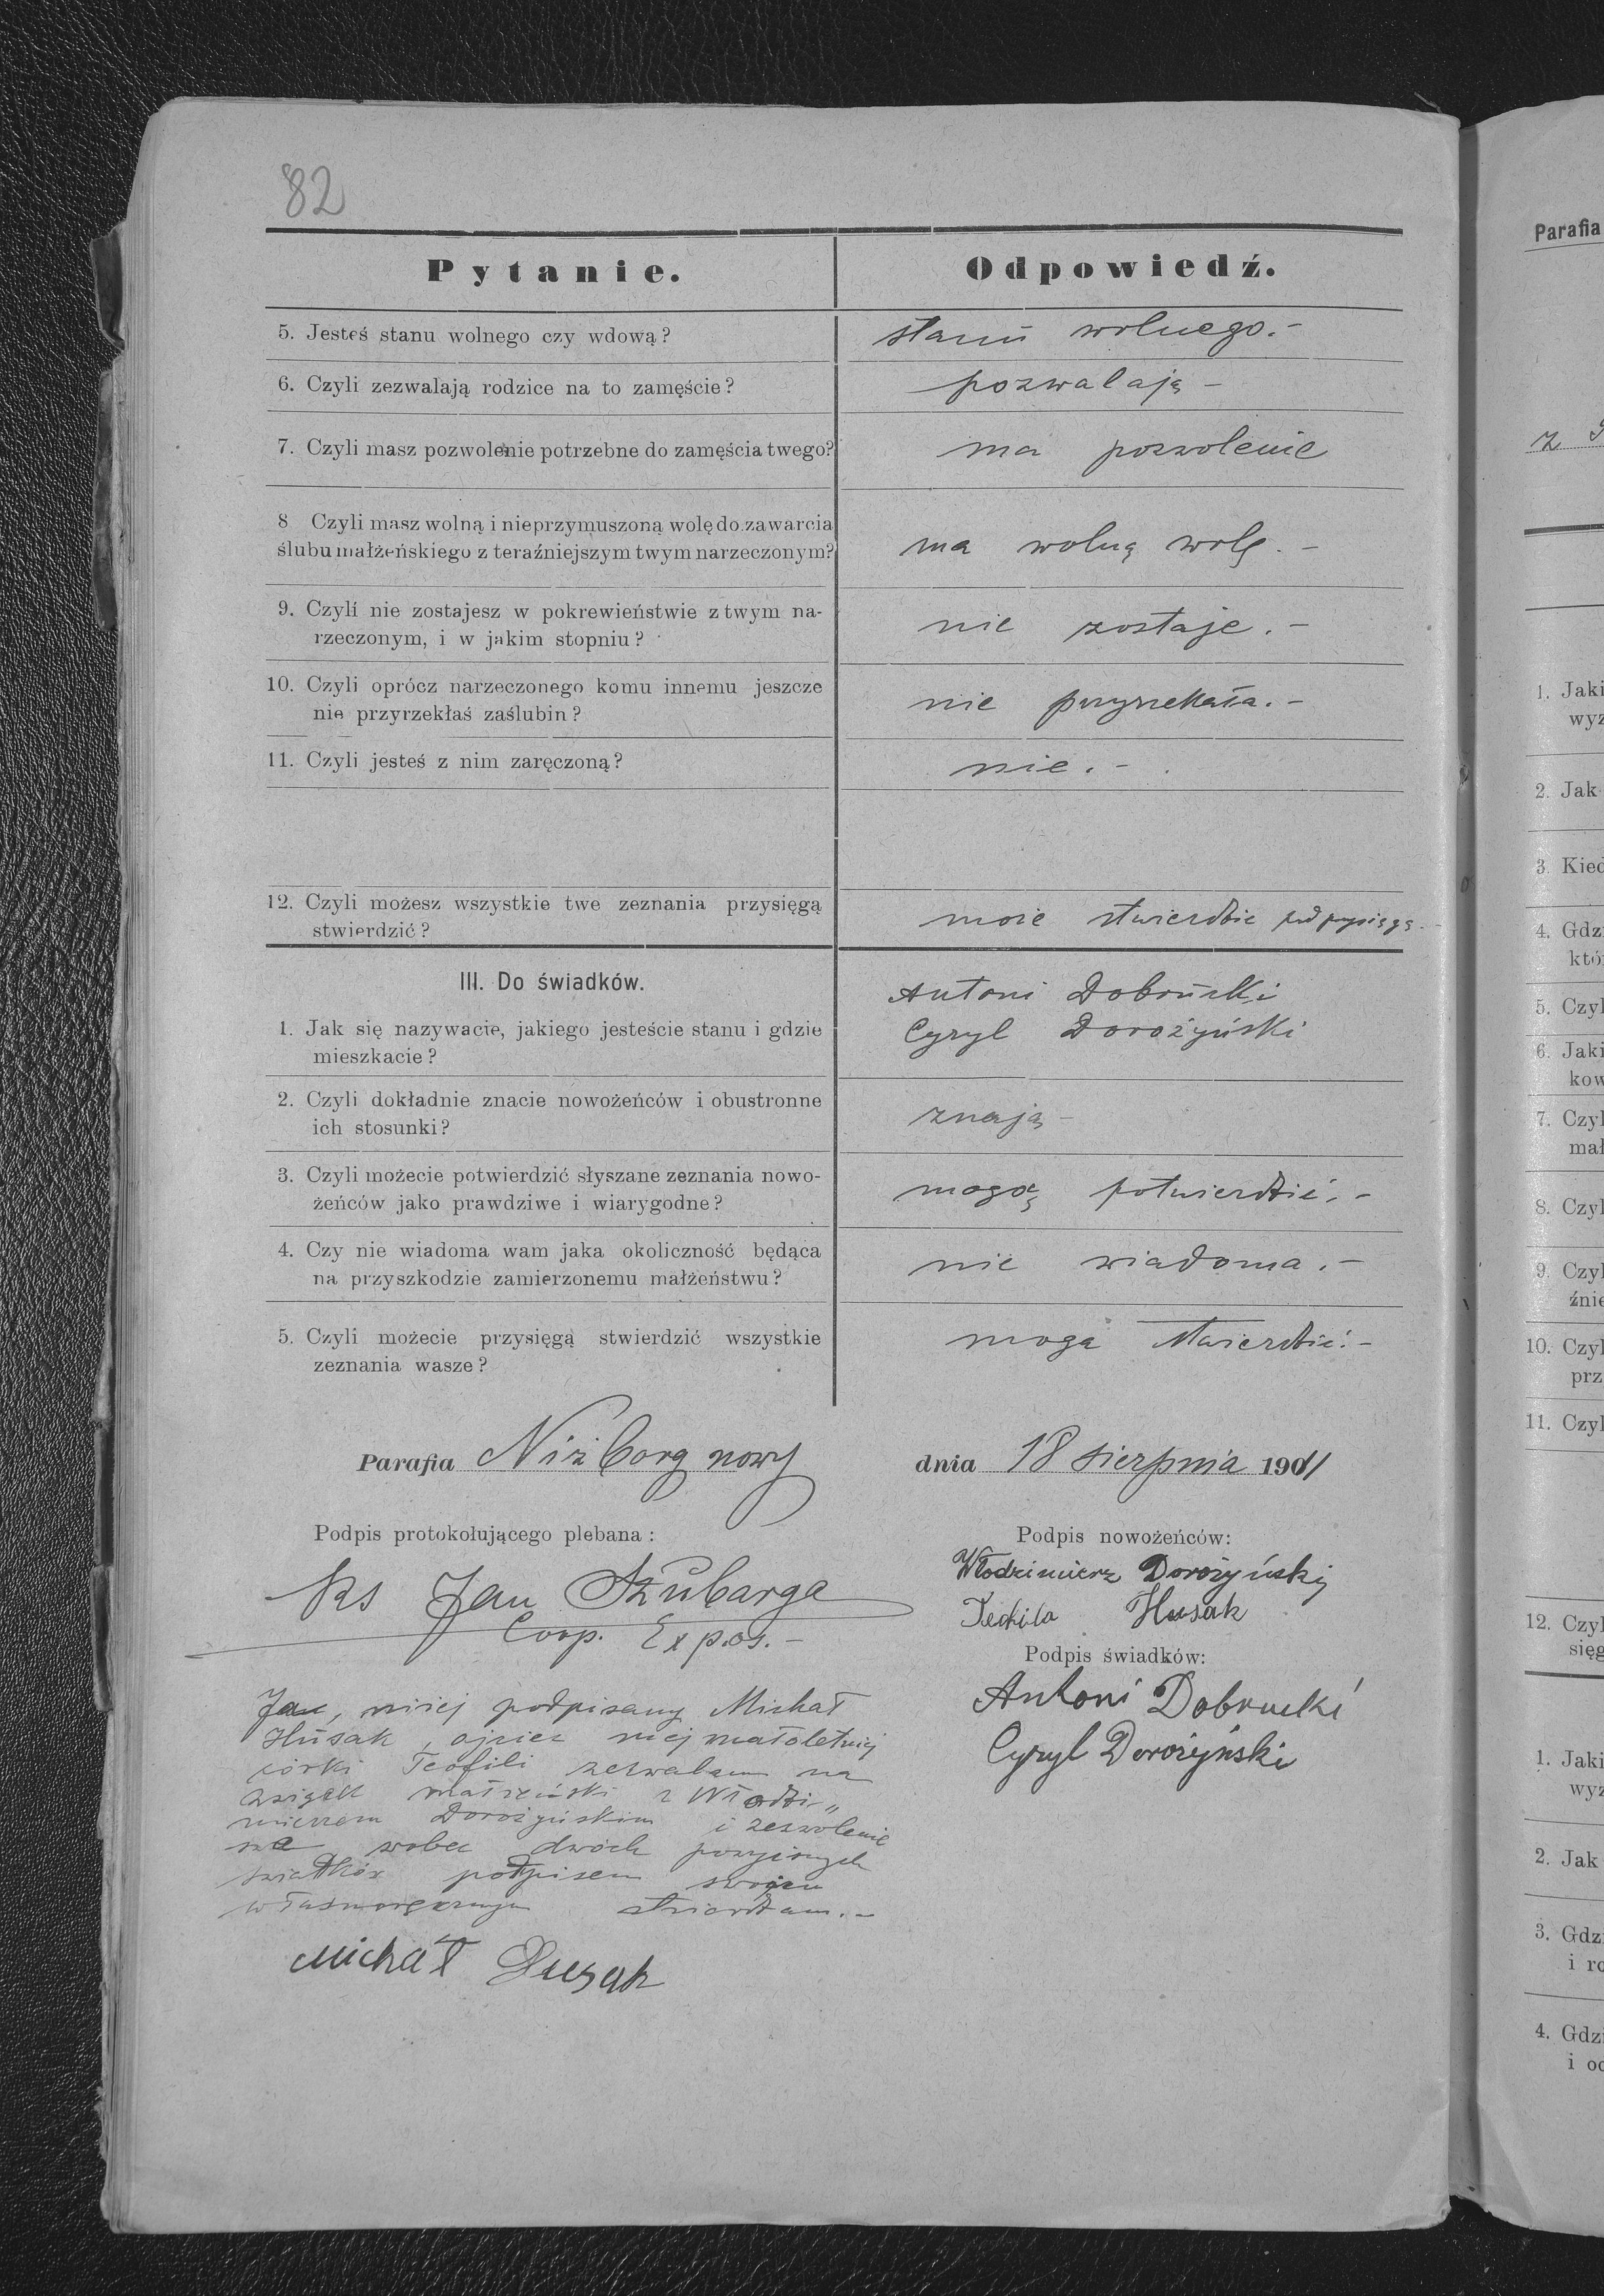 82
Pytanie. Odpowiedź.
5. Jesteś stanu wolnego czy wdową? stanu wolnego.-
6. Czyli zezwalają rodzice na to zamęście? pozwalają -
7. Czyli masz pozwolenie potrzebne do zamęścia twego? ma pozwolenie
8 Czyli masz wolną i nieprzymuszoną wolę do zawarcia
ślubu małżeńskiego z teraźniejszym twym narzeczonym? ma wolną wolę. -
9. Czyli nie zostajesz w pokrewieństwie z twym na-
rzeczonym, i w jakim stopniu? nie zostaje. -
10. Czyli oprócz narzeczonego komu innemu jeszcze
nie przyrzekłaś zaślubin? nie przyrzekała. -
11. Czyli jesteś z nim zaręczoną? nie. -
12. Czyli możesz wszystkie twe zeznania przysięgą
stwierdzić? może stwierdzić pod przysięgą.
III. Do świadków.
1. Jak się nazywacie, jakiego jesteście stanu i gdzie
mieszkacie?
Antoni Dobrucki
Cyryl Dorożyński
2. Czyli dokładnie znacie nowożeńców i obustronne
ich stosunki? znają -
3. Czyli możecie potwierdzić słyszane zeznania nowo-
żeńców jako prawdziwe i wiarygodne? mogą potwierdzić. -
4. Czy nie wiadoma wam jaka okoliczność będąca
na przyszkodzie zamierzonemu małżeństwu? nie wiadoma. -
5. Czyli możecie przysięgą stwierdzić wszystkie
zeznania wasze? mogą stwierdzić. -
Parafia Niżborg nowy dnia 18 sierpnia 1901
Podpis protokołującego plebana:
Ks Jan Szubarga
Coop. Expos. -
Podpis nowożeńców:
Włodzimierz Dorożyński
Teofila Husak
Podpis świadków:
Antoni Dobrucki
Cyryl Dorożyński
niżej podpisany Michał
Husak, ojciec niej małoletniej
córki Teofili zezwalam na
związek małżeński z Włodzi„
mierzem Dorożyńskim i zezwolenie
wobec dwóch
świadków podpisem swoim
własnoręcznym stwierdzam. -
Michał Husak
Parafia
z
1. Jaki
wyz
2. Jak
3. Kied
4. Gdzi
któ
5. Czyl
6. Jaki
kow
7. Czyl
mał
8. Czyl
9. Czyl
źnie
10. Czyl
prz
11. Czyl
12. Czyl
sięg
1. Jaki
wyz
2. Jak
3. Gdzi
i ro
4. Gdzi
i oc